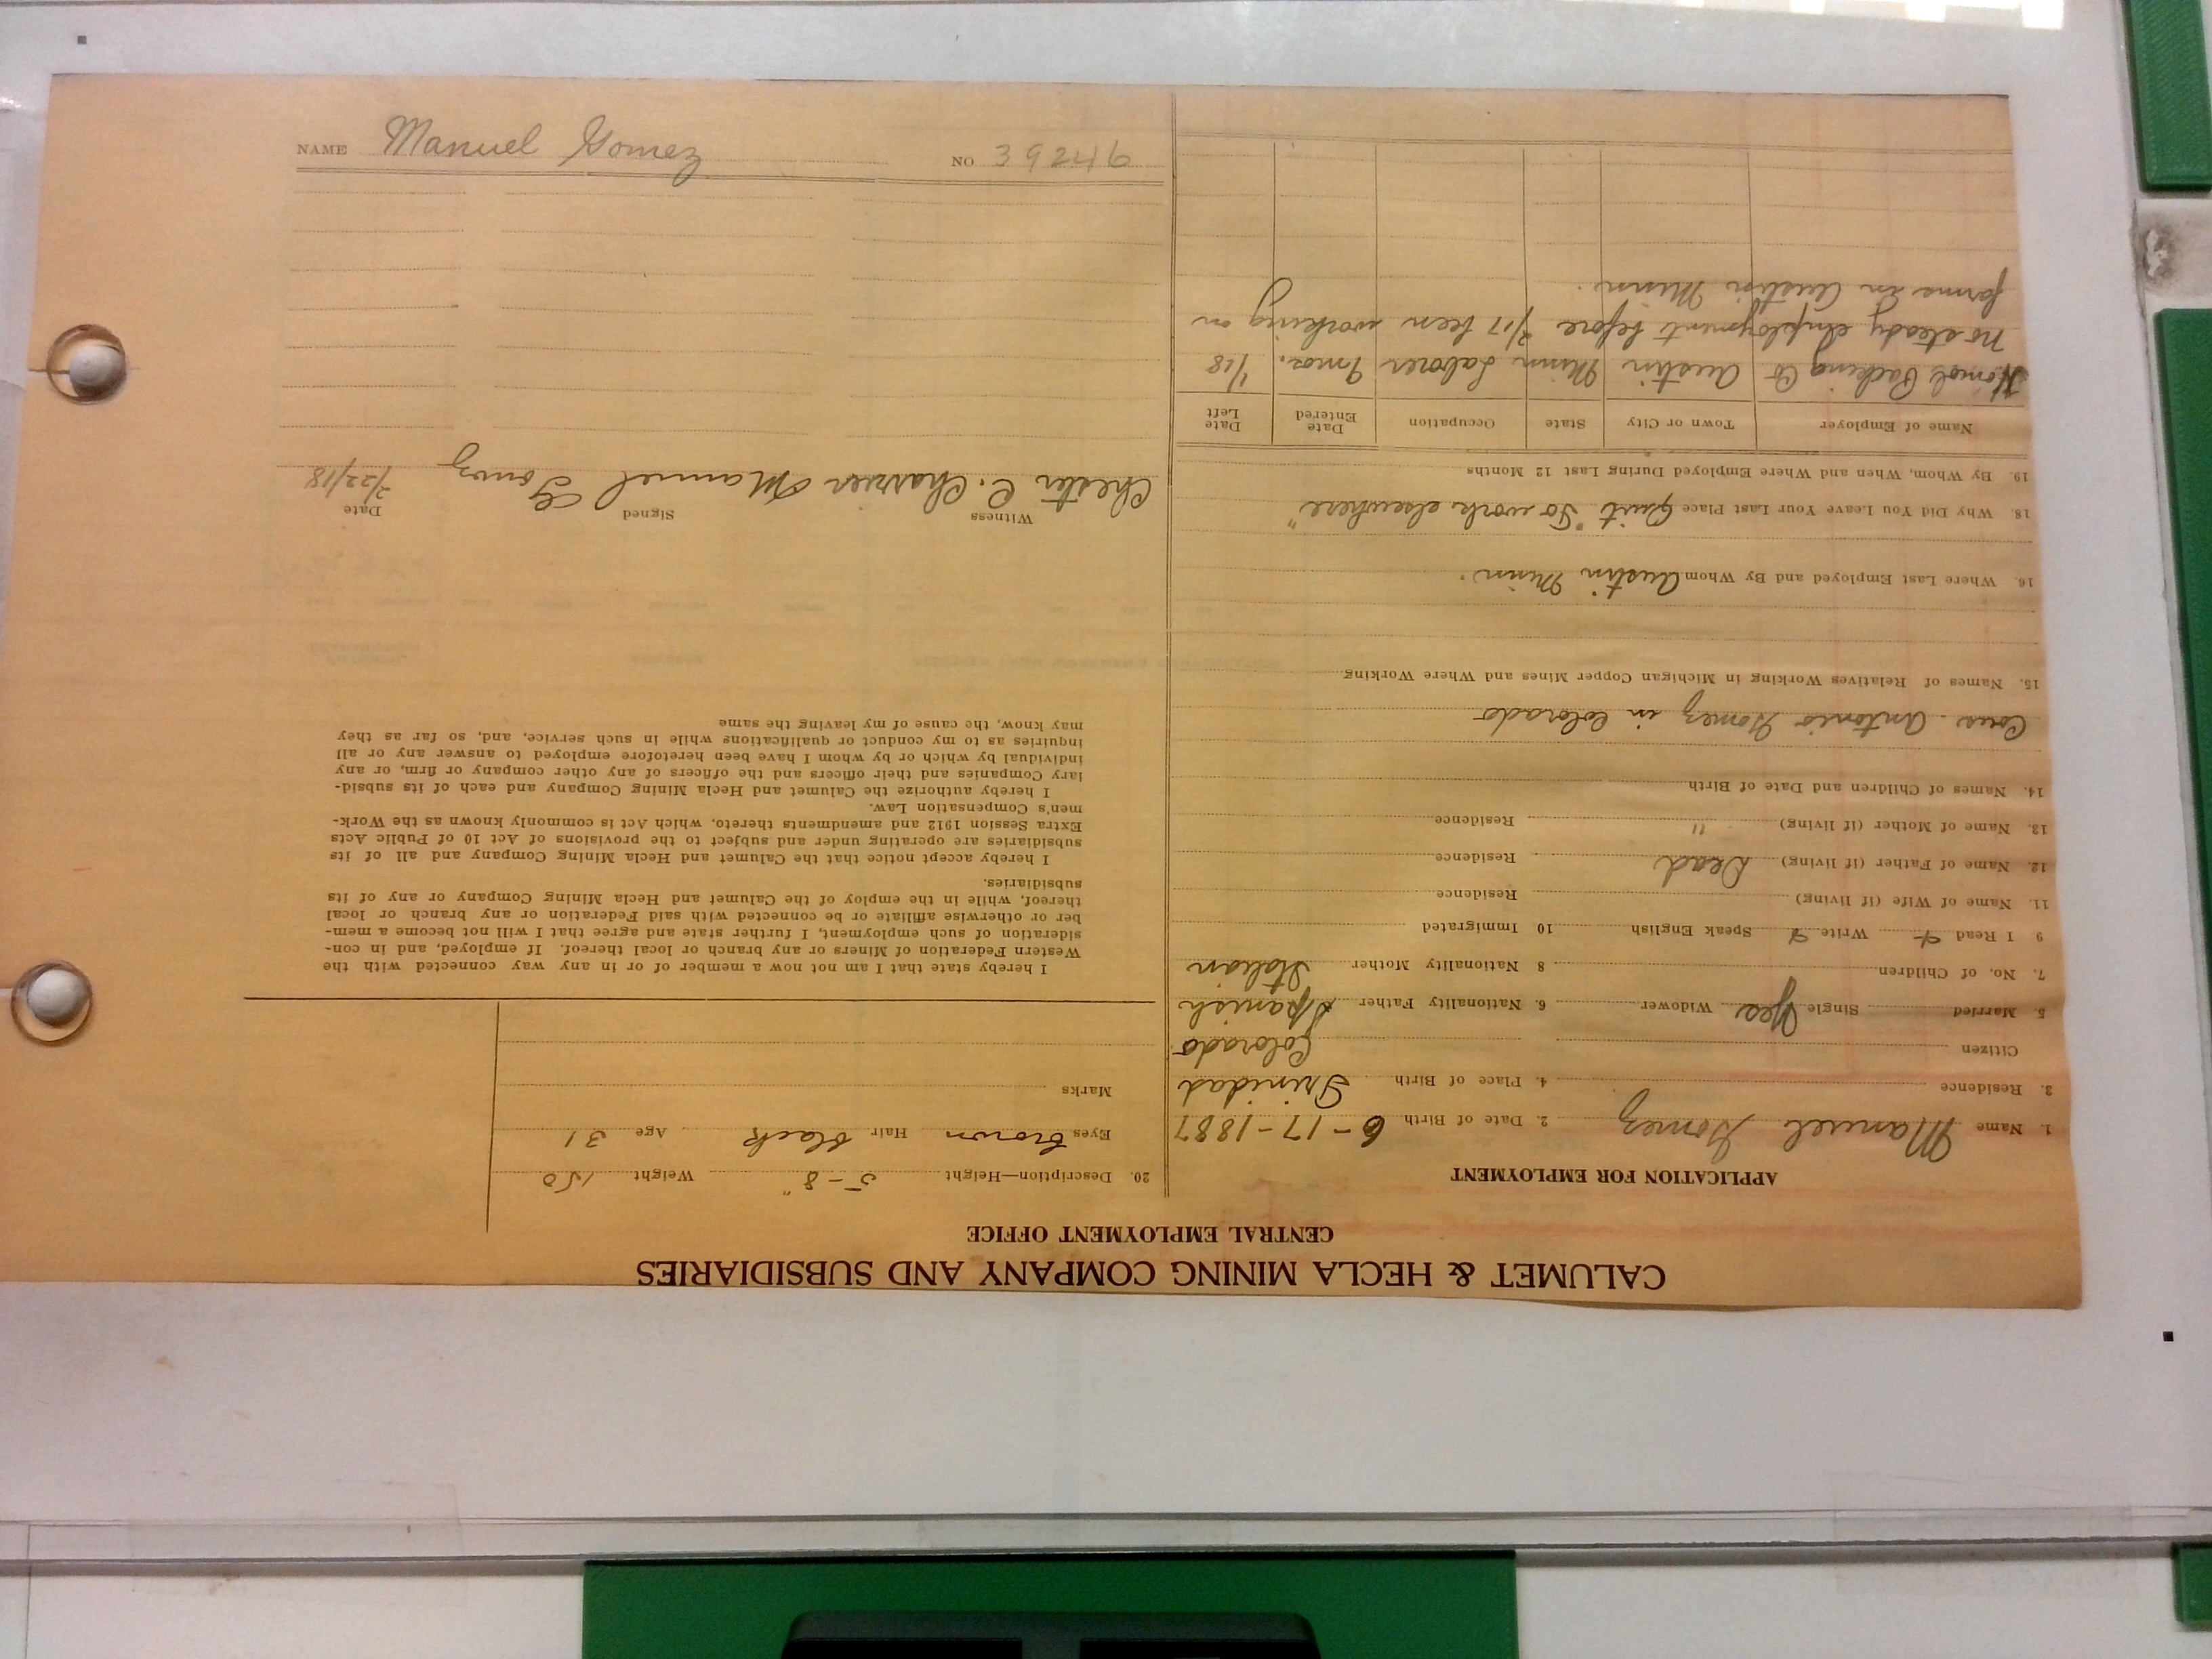 CALUMET & HECLA MINING COMPANY AND SUBSIDIARIES
CENTRAL EMPLOYMENT OFFICE
APPLICATION FOR EMPLOYMENT
1. Name Manuel Gomez 2. Date of Birth 6-17-1887
3. Residence 4. Place of Birth Trinidad
Citizen Colorado
5. Married Single Yes Widower 6. Nationality Father Spanish
7. No. of Children 8 Nationality Mother Italian
9 I Read Write Speak English 10 Immigrated
11. Name of Wife (if living) Residence
12. Name of Father (if living) Dead Residence
13. Name of Mother (if living) " Residence
14. Names of Children and Date of Birth
Cous. Antonio Gomez in Colorado
15. Names of Relatives Working in Michigan Copper Mines and Where Working
16. Where Last Employed and By Whom Austin Minn.
18. Why Did You Leave Your Last Place Quit "To work elsewhere"
19. By Whom, When and Where Employed During Last 12 Months
Name of Employer Town or City State Occupation Date Entered Date Left
Hormel Packing Co Austin Minn Laborer 9 mos. 1/18
No steady employment before 3/17 been working on
farms in Austin Minn.
20. Description—Height 5-8" Weight 150
Eyes brown Hair black Age 31
Marks
I hereby state that I am not now a member of or in any way connected with the
Western Federation of Miners or any branch or local thereof. If employed, and in con-
sideration of such employment, I further state and agree that I will not become a mem-
ber or otherwise affiliate or be connected with said Federation or any branch or local
thereof, while in the employ of the Calumet and Hecla Mining Company or any of its
subsidiaries.
I hereby accept notice that the Calumet and Hecla Mining Company and all of its
subsidiaries are operating under and subject to the provisions of Act 10 of Public Acts
Extra Session 1912 and amendments thereto, which Act is commonly known as the Work-
men's Compensation Law.
I hereby authorize the Calumet and Hecla Mining Company and each of its subsid-
iary Companies and their officers and the officers of any other company or firm, or any
individual by which or by whom I have been heretofore employed to answer any or all
inquiries as to my conduct or qualifications while in such service, and, so far as they
may know, the cause of my leaving the same
Witness Signed Date
Chester C. Manuel Gomez 2/22/18
NAME Manuel Gomez NO 39246